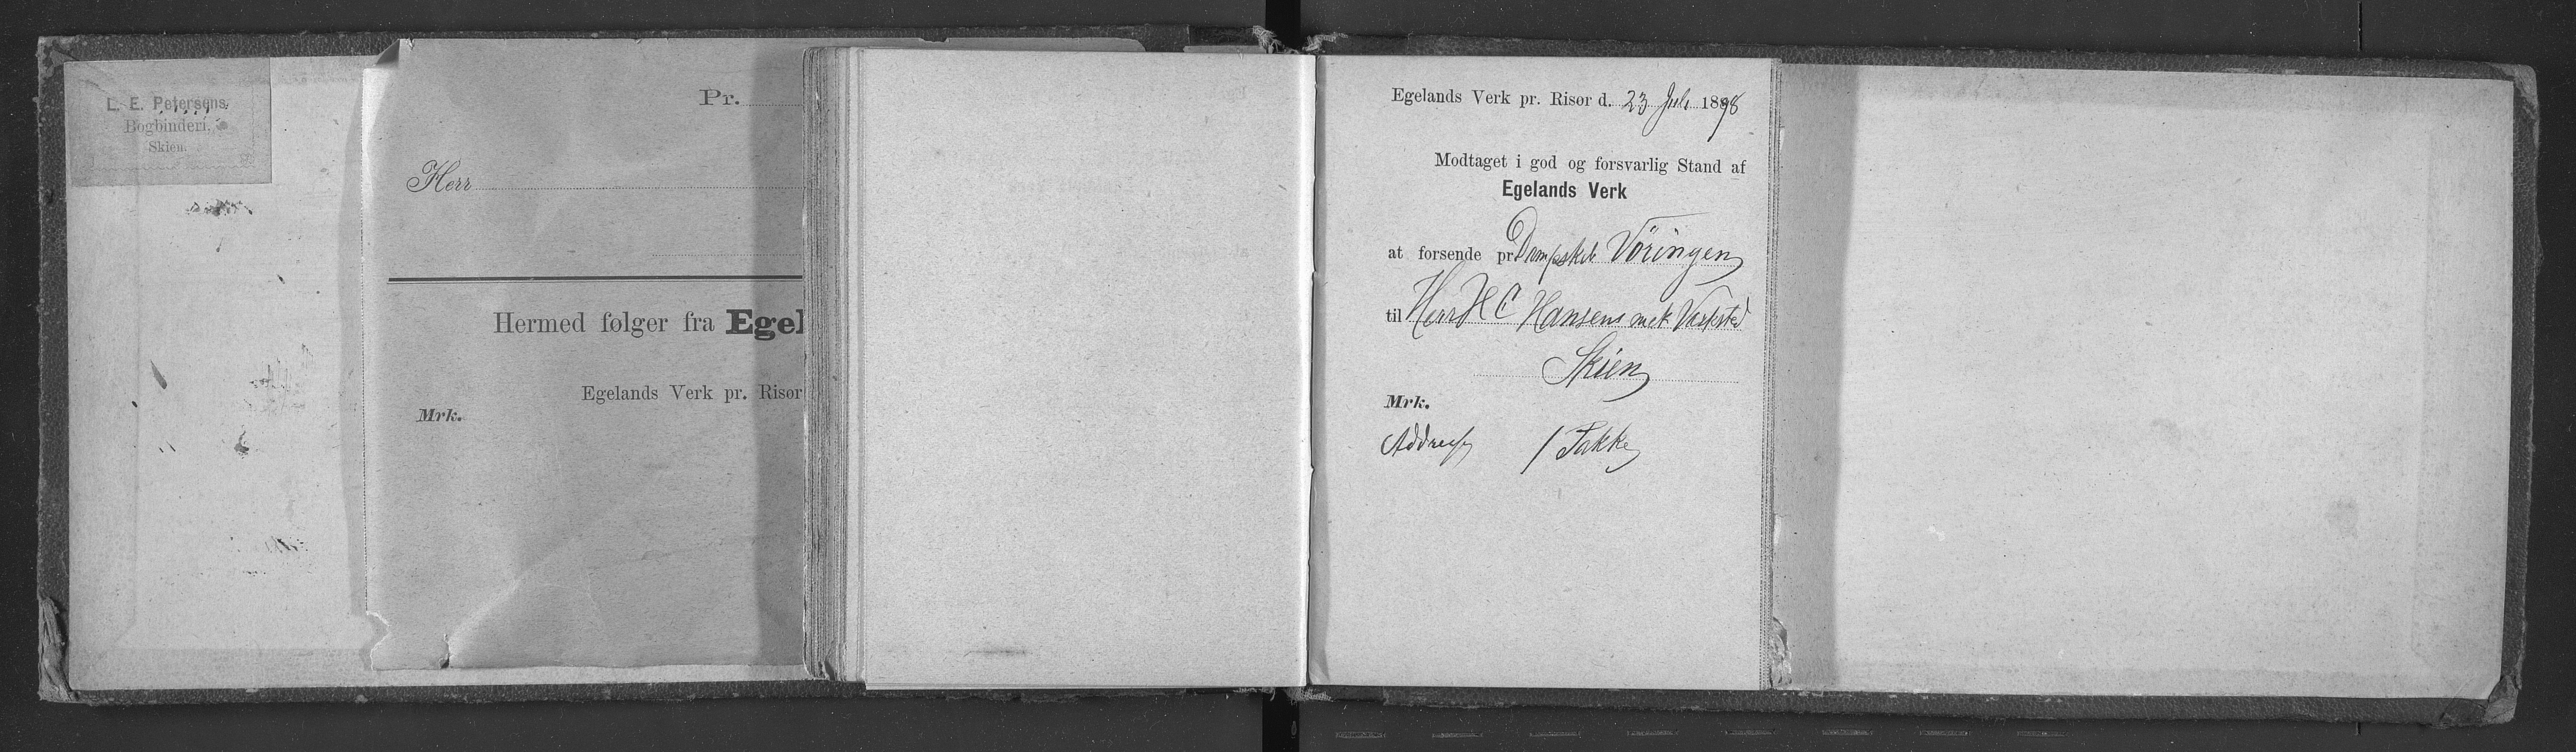 L. E. Petersens
Bogbinderi,
Skien.
Pr.
Herr
Hermed følger fra Egel
Egelands Verk pr. Risør
Mrk.
Egelands Verk pr. Risør d. 23 Juli 1898
Modtaget i god og forsvarlig Stand af
Egelands Verk
at forsende pr. Dampskib Vöringen
til Herr H C Hansens mek Værksted
Skien
Mrk.
Addresse 1 Pakke